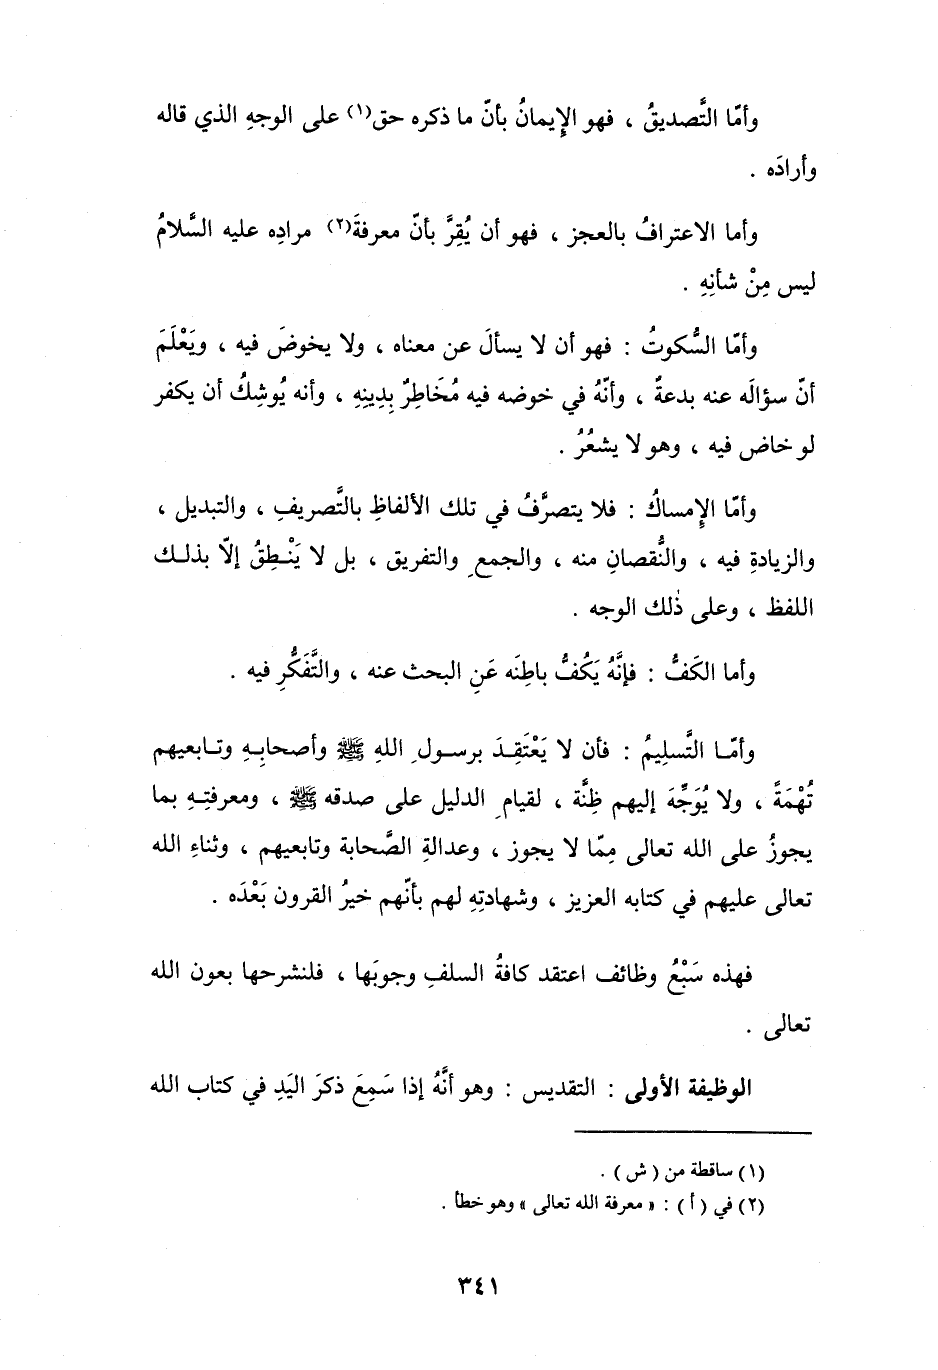 وأمّا التَّصديقُ ، فهو الإِيمانُ بأنّ ما ذكره حق(١) على الوجهِ الذي قاله
وأرادَه .
وأما الاعترافُ بالعجز ، فهو أن يُقِرَّ بأنّ معرفةَ(٢) مرادِه عليه السَّلامُ
ليس مِنْ شأنِهِ .
وأمّا السُّكوتُ : فهو أن لا يسألَ عن معناه ، ولا يخوضَ فيه ، ويَعْلَمَ
أنّ سؤالَه عنه بدعةٌ ، وأنّهُ في خوضه فيه مُخَاطِرٌ بِدِينِهِ ، وأنه يُوشِكُ أن يكفر
لو خاض فيه ، وهو لا يشعُرُ .
وأمّا الإِمساكُ : فلا يتصرَّفُ في تلك الألفاظِ بالتَّصريفِ ، والتبديل ،
والزيادةِ فيه ، والنُّقصانِ منه ، والجمعِ والتفريق ، بل لا يَنْطِقُ إلّا بذلك
اللفظ ، وعلى ذٰلك الوجه .
وأما الكَفُّ : فإنَّهُ يَكُفُّ باطِنَه عَنِ البحث عنه ، والتَّفَكُّرِ فيه .
وأمّا التَّسليمُ : فأن لا يَعْتَقِدَ برسولِ اللهِ ﷺ وأصحابِهِ وتابعيهم
تُهْمَةً ، ولا يُوَجِّهَ إليهم ظِنَّة ، لقيامِ الدليل على صدقه ﷺ ، ومعرفتِهِ بما
يجوزُ على الله تعالى مِمّا لا يجوز ، وعدالةِ الصَّحابة وتابعيهم ، وثناءِ الله
تعالى عليهم في كتابه العزيز ، وشهادتِهِ لهم بأنّهم خيرُ القرون بَعْدَه .
فهذه سَبْعُ وظائف اعتقد كافةُ السلفِ وجوبَها ، فلنشرحها بعون الله
تعالى .
الوظيفة الأولى : التقديس : وهو أنَّهُ إذا سَمِعَ ذكرَ اليَدِ في كتاب الله
(١) ساقطة من ( ش ) .
(٢) في ( أ ) : « معرفة الله تعالى » وهو خطأ .
٣٤١